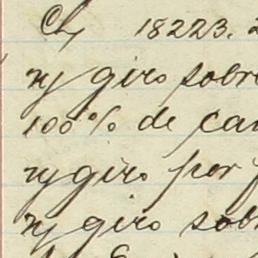 Ch/ 18223.
n/ giro sobre
100% de cam
n/ giro por f
n/ giro sob